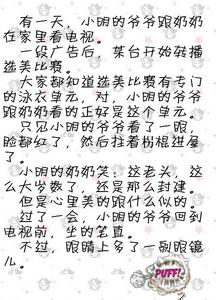 有一天，小明的爷爷跟奶奶
在家里看电视。
一段广告后，某台开始转播
选美比赛。
大家都知道选美比赛有专门
的泳衣单元，对，小明的爷爷
跟奶奶看的正好是这个单元。
只见小明的爷爷看了一眼，
脸都红了，然后拄着拐棍进屋
了。
小明的奶奶笑：这老头，这
么大岁数了，还是那么封建。
但是心里美的跟什么似的。
过了一会，小明的爷爷回到
电视前，坐的笔直。
不过，眼睛上多了一副眼镜
儿。
PUFF!